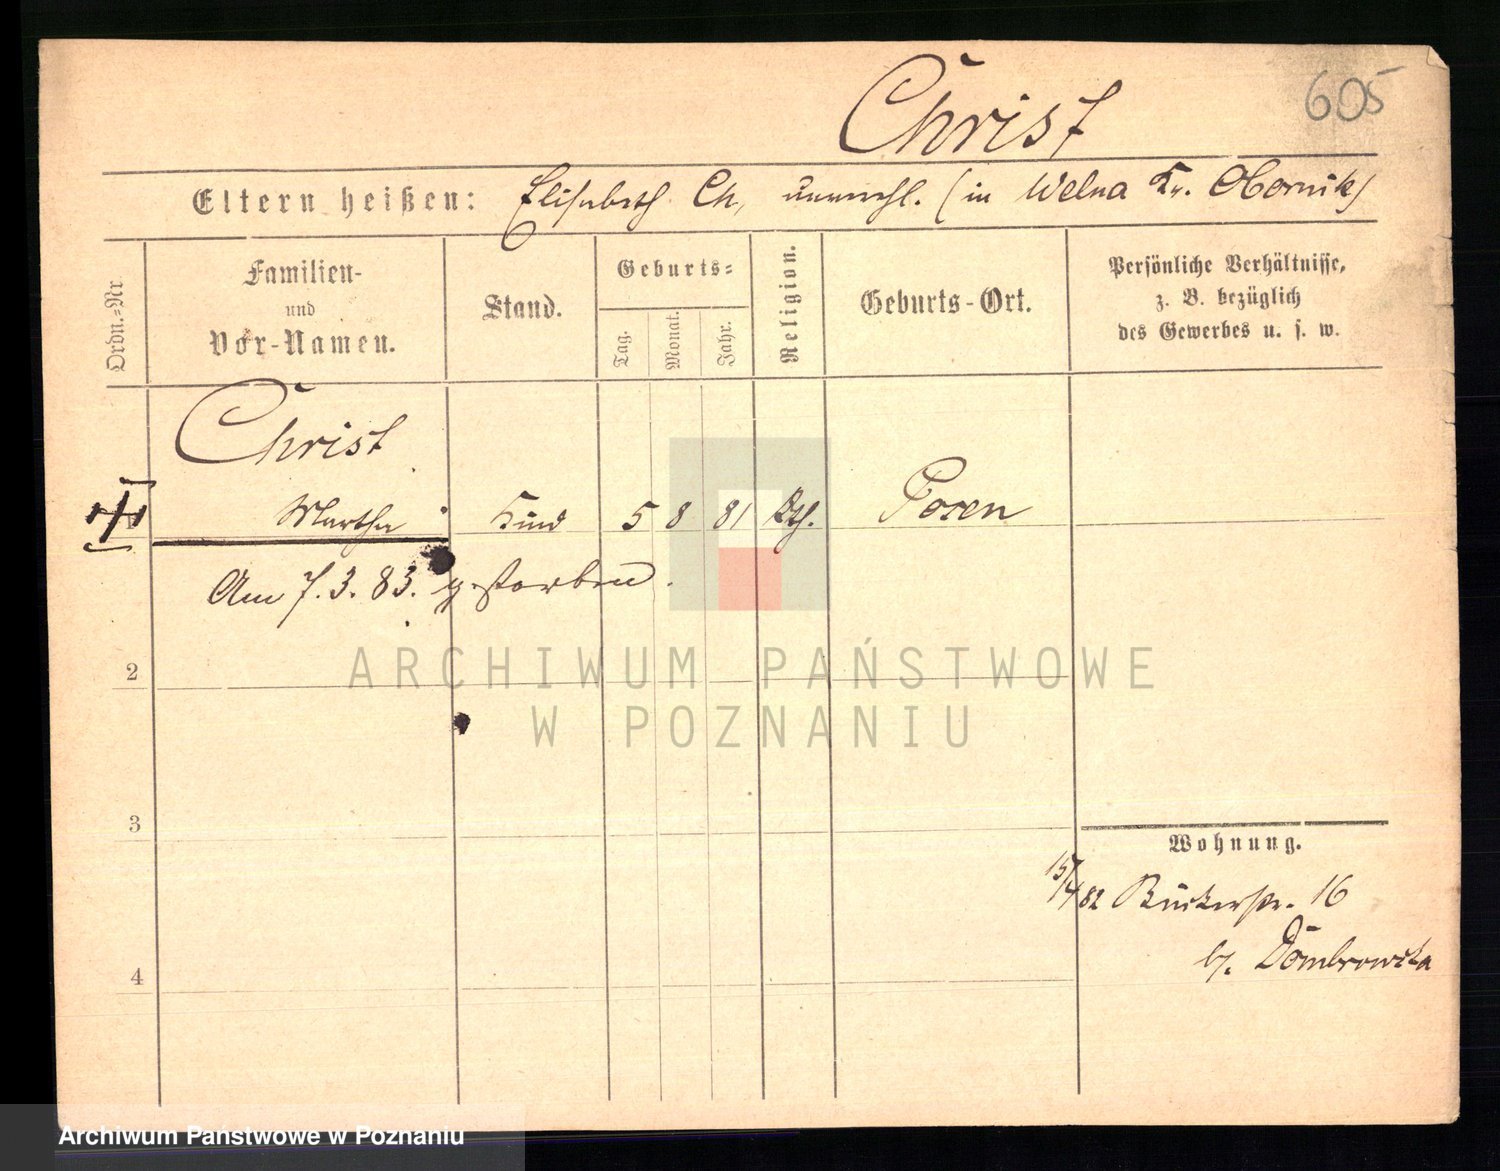 605
Christ
Eltern heißen: Elisabeth Ch, unverehl. (in Welna Kr. Obornik)
Ordn.-Nr
Familien-
und
Vor-Namen.
Stand.
Geburts-
Tag.
Monat.
Jahr.
Religion.
Geburts-Ort.
Persönliche Verhältnisse,
z. B. bezüglich
des Gewerbes u. s. w.
Christ
Martha Kind 5 8 81 Kth. Posen
Am 7.3.83. gestorben.
2
3
4
Wohnung.
15/4 82 Bäckerstr. 16
bj. Dombrowska
ARCHIWUM PAŃSTWOWE
W POZNANIU
Archiwum Państwowe w Poznaniu